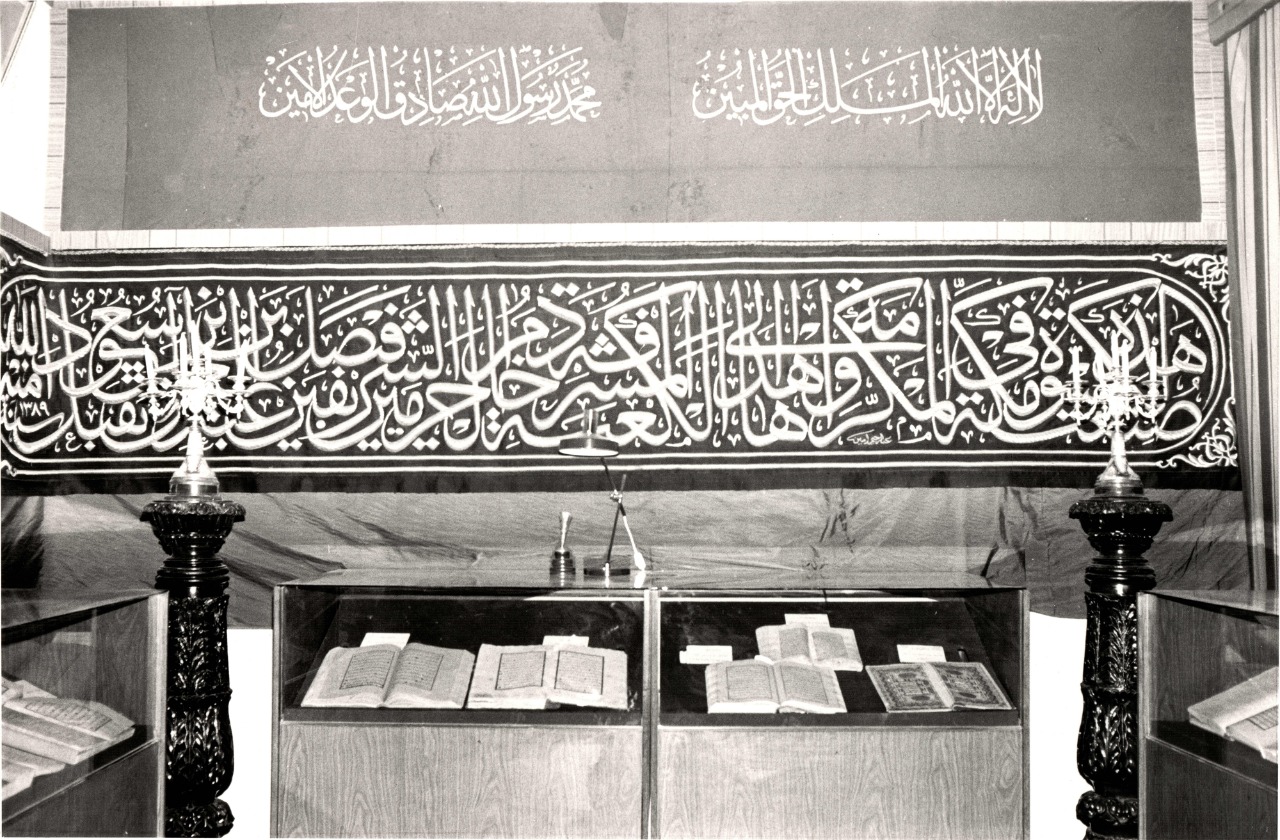 لا إله إلا الله الملك الحق المبين
محمد رسول الله صادق الوعد الأمين
صنعت هذه الكسوة في مكة المكرمة وأهداها إلى الكعبة المشرفة خادم الحرمين الشريفين فيصل بن عبد العزيز آل سعود تقبل الله منه ١٣٨٩